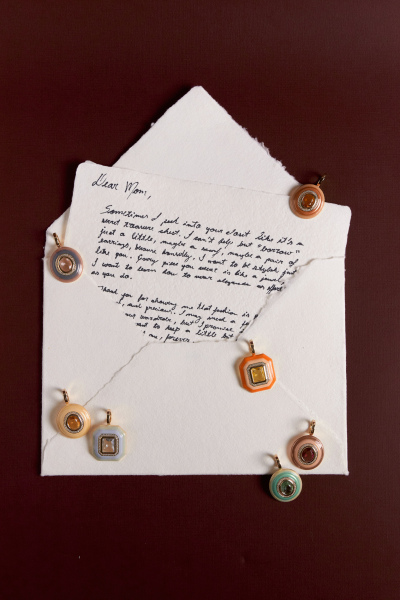 Dear Mom,
Sometimes I sneak into your closet like it's a
secret treasure chest. I can't help but "borrow"
just a little, maybe a scarf, maybe a pair of
earrings, because honestly, I want to be stylish just
like you. Every piece you wear is like a
I want to learn how to wear elegance as
as you do.
Thank you for showing me that fashion is
and precious. I may need a
but I promise
to keep a little bit
forever